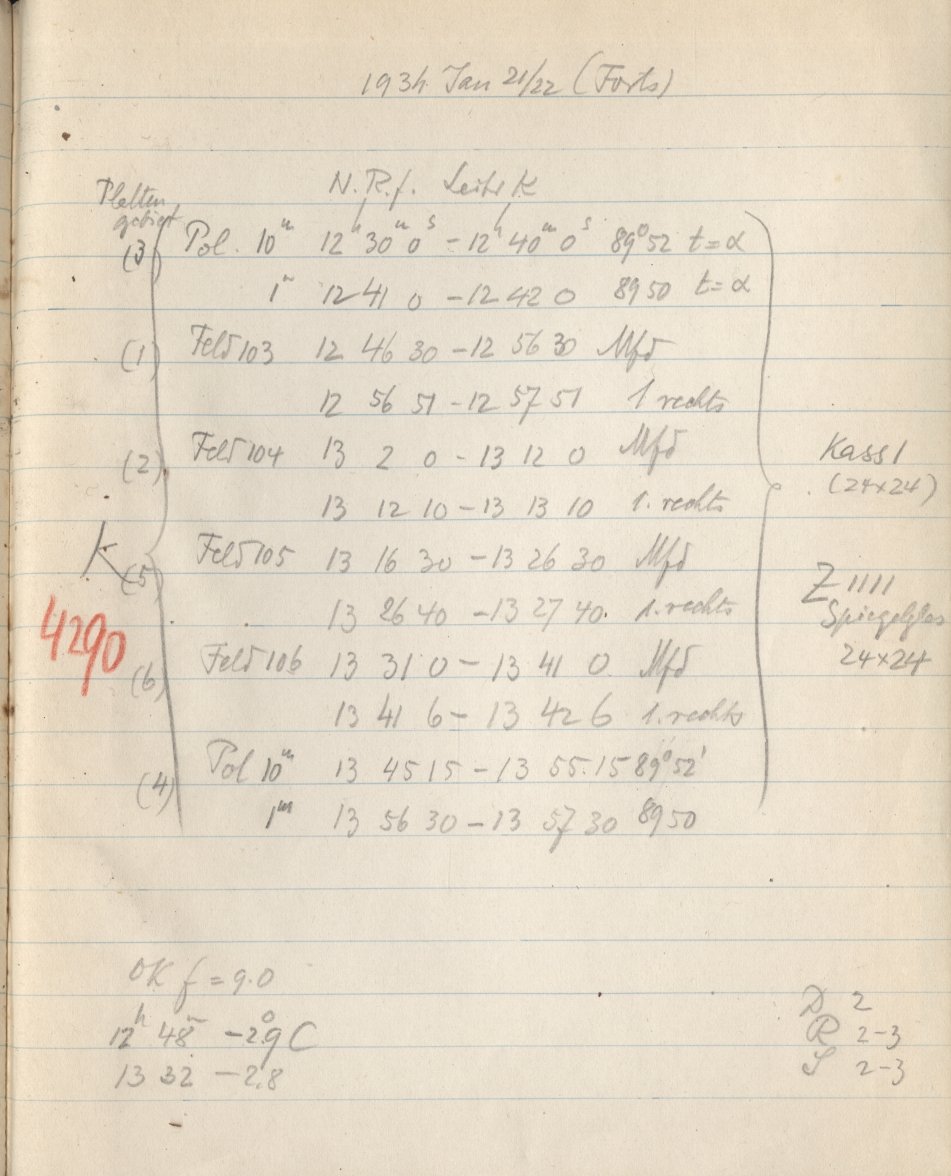 1934 Jan 21/22 (Forts)
N.R.f. Leitst K
Platten
gebiet
(3) Pol. 10ᵐ 12ʰ 30ᵐ 0ˢ – 12ʰ 40ᵐ 0ˢ 89°52 t=α
1ᵐ 12 41 0 – 12 42 0 89 50 t=α
(1) Feld 103 12 46 30 – 12 56 30 Mfd
12 56 51 – 12 57 51 1 rechts
(2) Feld 104 13 2 0 – 13 12 0 Mfd
13 12 10 – 13 13 10 1. rechts
(5) Feld 105 13 16 30 – 13 26 30 Mfd
13 26 40 – 13 27 40. 1. rechts
(6) Feld 106 13 31 0 – 13 41 0. Mfd
13 41 6 – 13 42 6 1. rechts
(4) Pol 10ᵐ 13 45 15 – 13 55.15 89°52'
1ᵐ 13 56 30 – 13 57 30 89 50
K
4290
Kass 1
(24×24)
Z 1111
Spiegelglas
24×24
OK f = 9.0
12ʰ 48ᵐ –2°,9 C
13 32 –2,8
D 2
R 2-3
S 2-3